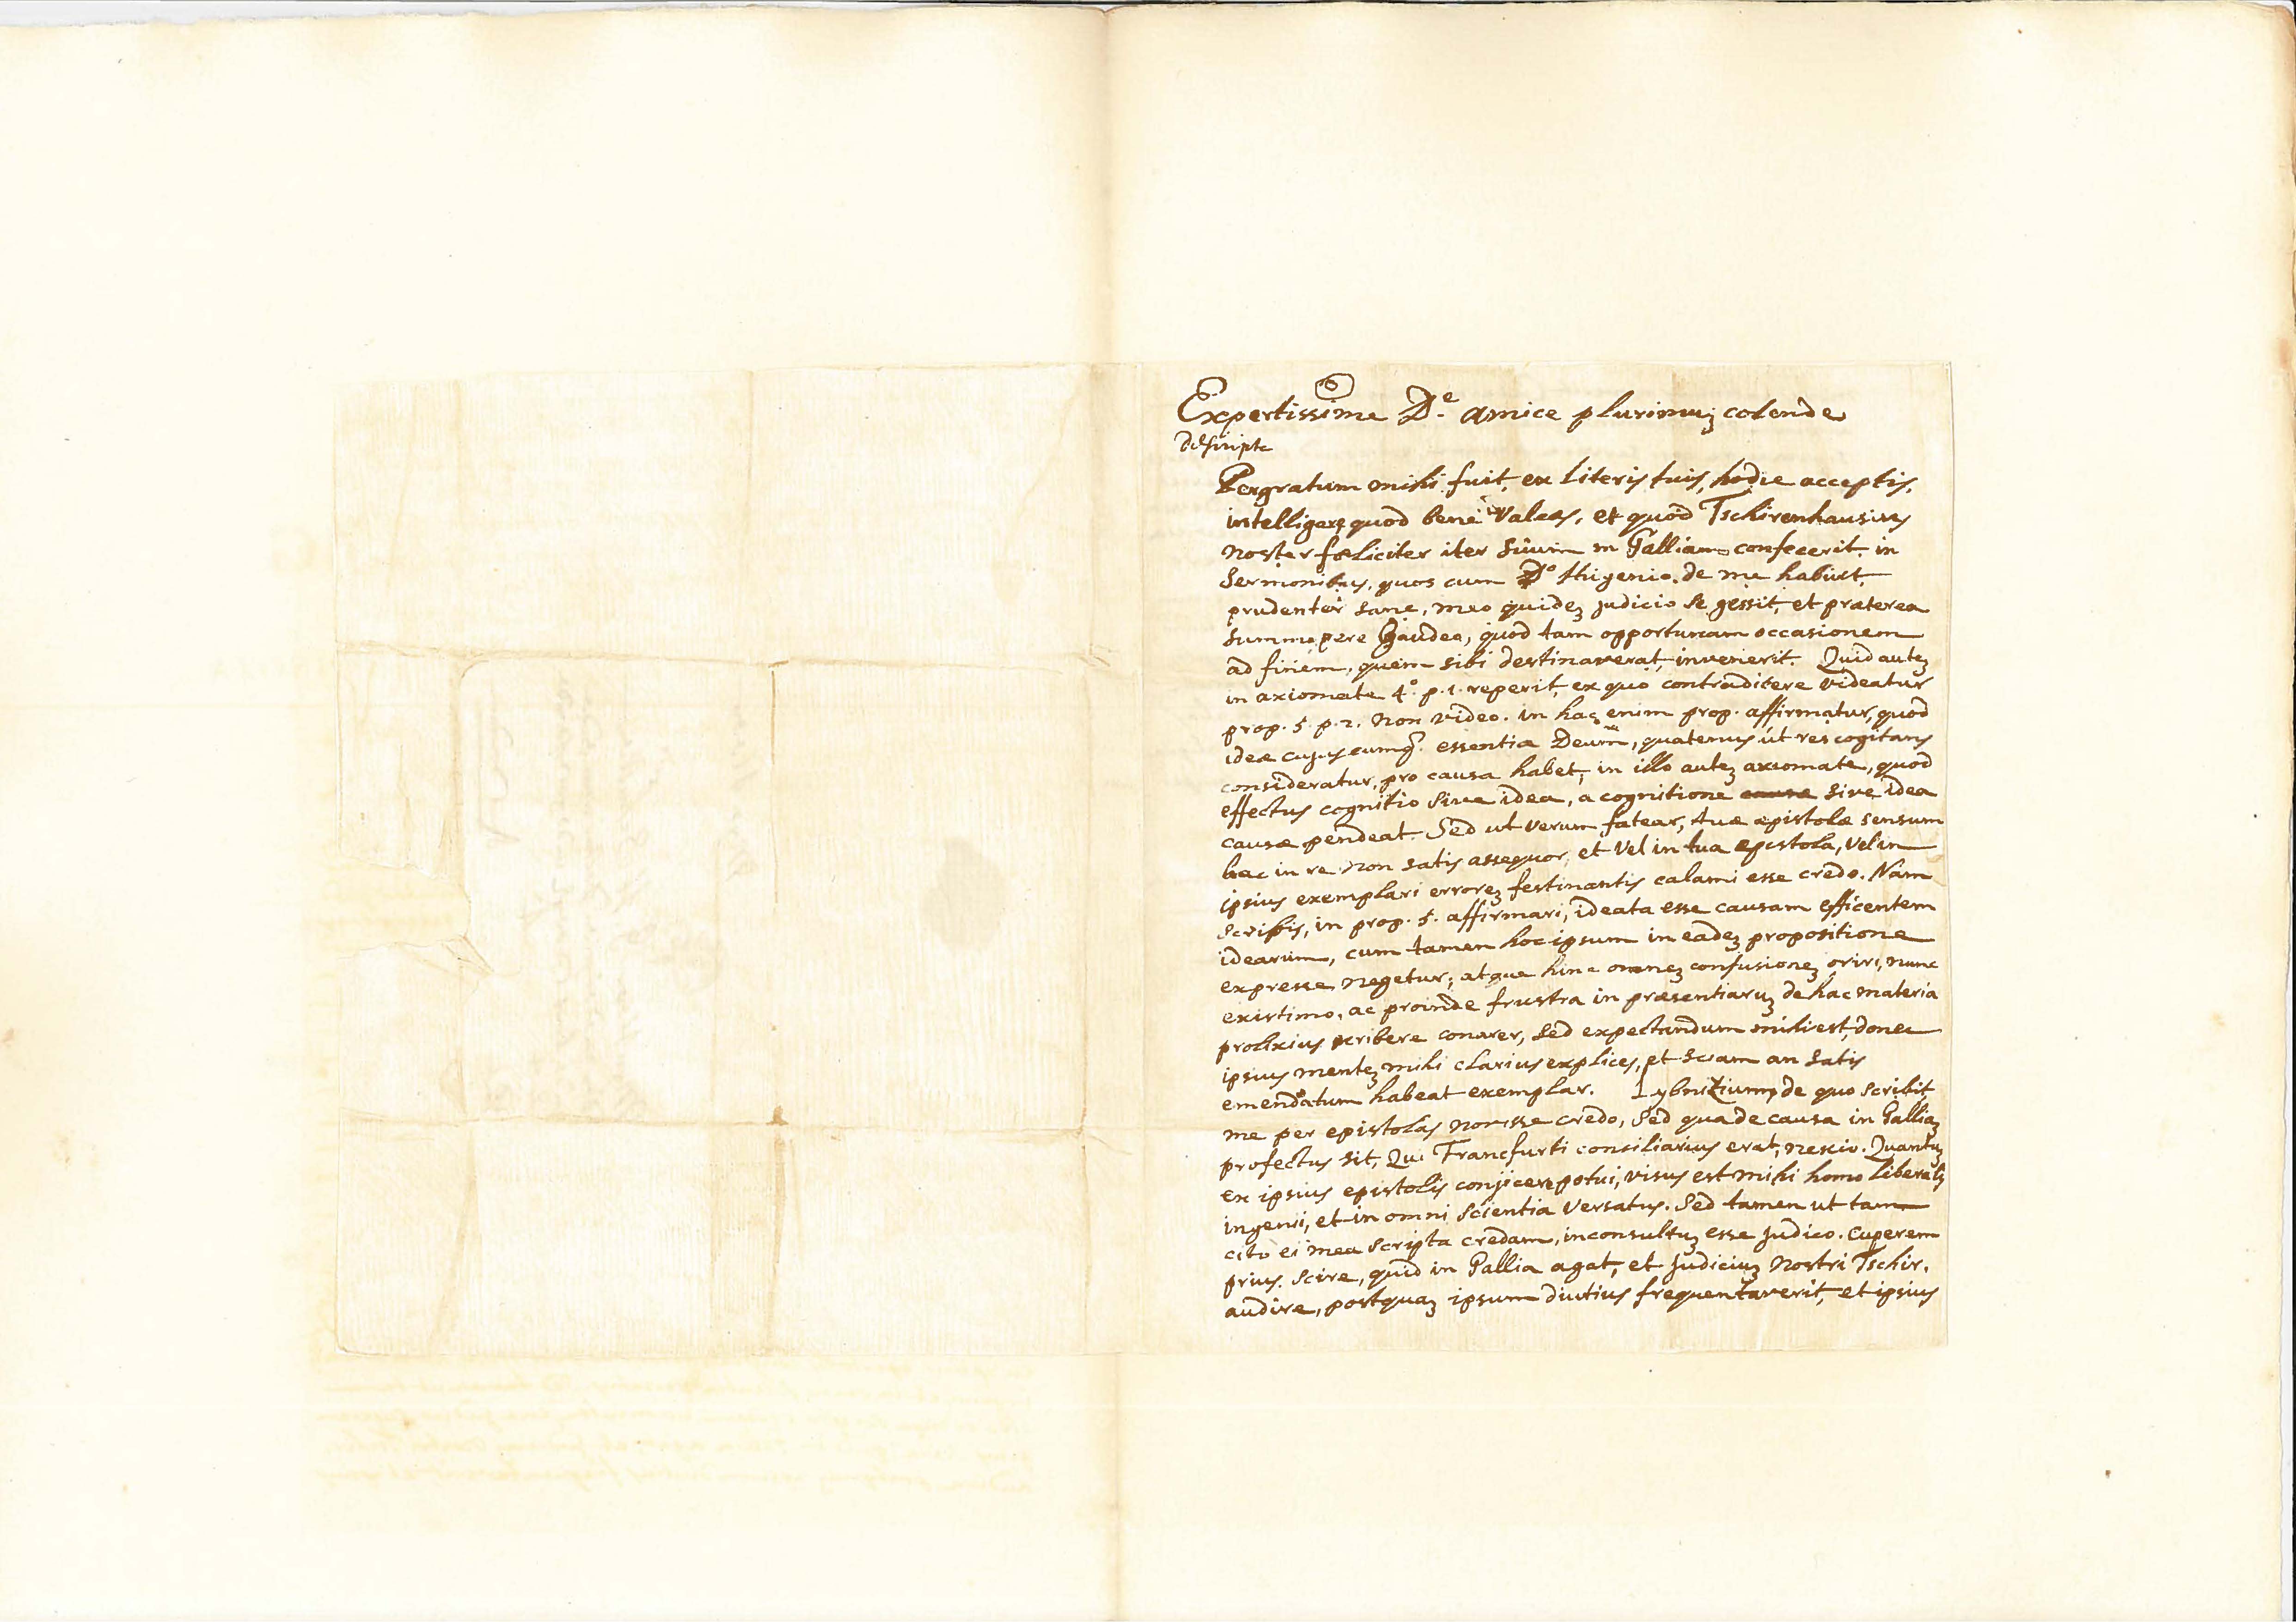 6
Expertissime De. amice plurimuꝫ colende
descripta
Pergratum mihi fuit, ex literis tuis, hodie acceptis,
intelligere quod benè valeas, et quòd Tschirenhausius
noster fœliciter iter suum in Galliam confecerit. in
sermonibus, quos cum Do Hugenio de me habuit,
prudenter sane, meo quideꝫ judicio se gessit, et præterea
summopere Gaudeo, quod tam opportunam occasionem
ad finem, quem sibi destinaverat, invenerit. Quid auteꝫ
in axiomate 4.o p. 1. reperit, ex quo contradicere videatur
prop. 5. p. 2. non video. in hac enim prop. affirmatur, quod
ideæ cujuscumq. essentia Deum, quatenus ut res cogitans
consideratur, pro causa habet, in illo auteꝫ axiomate, quod
effectus cognitio sive idea, a cognitione causæ sive idea
causæ pendeat. Sed ut verum fatear, tuæ epistolæ sensum
hac in re non satis assequor, et vel in tua epistola, vel in
ipsius exemplari erroreꝫ festinantis calami esse credo. Nam
scribis, in prop. 5. affirmari, ideata esse causam efficentem
idearum, cum tamen hoc ipsum in eadeꝫ propositione
expresse negetur; atque hinc omneꝫ confusioneꝫ oriri, nunc
existimo, ac proinde frustra in præsentiaruꝫ de hac materia
prolixius scribere conarer, sed expectandum mihi est, donec
ipsius menteꝫ mihi clarius explices, et sciam an satis
emendatum habeat exemplar. Lybnitzium, de quo scribit,
me per epistolas novisse credo, sed qua de causa in Galliaꝫ
profectus sit, Qui Francfurti consiliarius erat, nescio. Quantuꝫ
ex ipsius epistolis conjicere potui, visus est mihi homo liberalis
ingenii, et in omni scientia versatus. Sed tamen ut tam
cito ei mea scripta credam, inconsultuꝫ esse judico. Cuperem
prius. scire, quid in Gallia agat, et judiciuꝫ nostri Tschir.
audire, postquaꝫ ipsum diutius frequentaverit, et ipsius